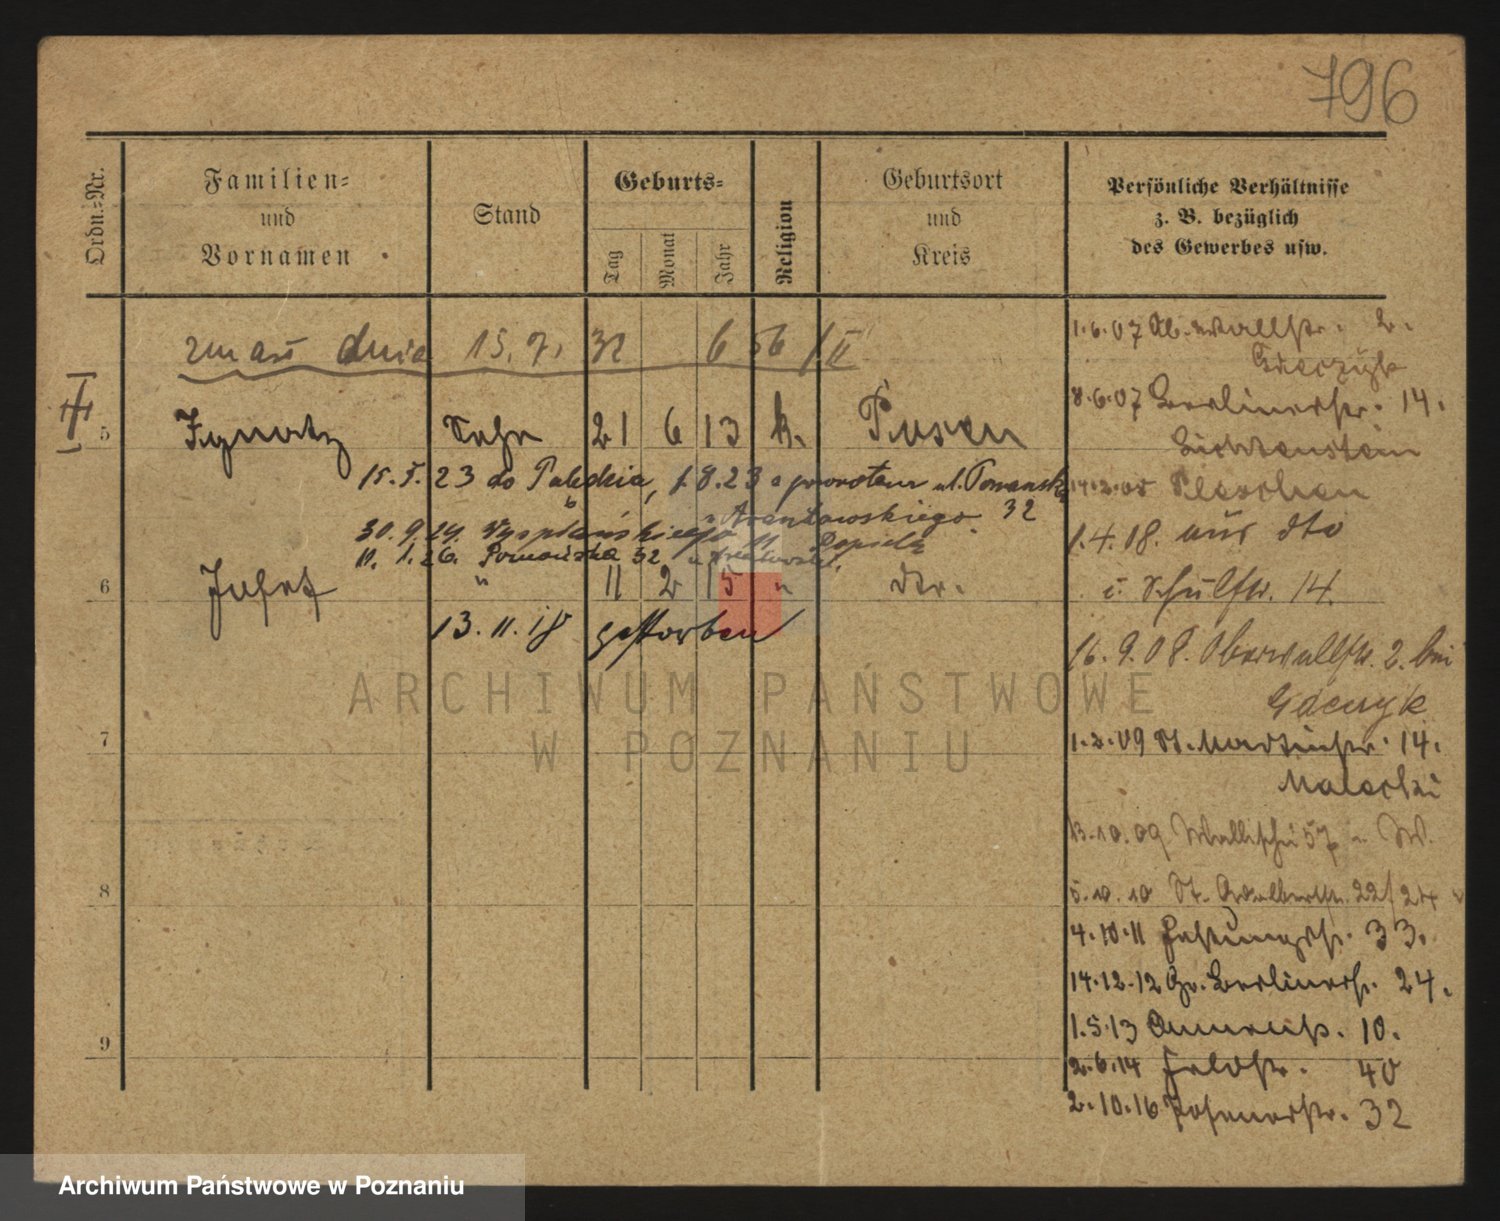 796
Ordn.-Nr.
Familien-
und
Vornamen
Stand
Geburts-
Tag
Monat
Jahr
Religion
Geburtsort
und
Kreis
Persönliche Verhältnisse
z. B. bezüglich
des Gewerbes usw.
zmarł dnia 15. 7. 32 656/II
5 Ignatz Sohn 21 6 13 k. Posen
15. 5. 23 do 1. 8. 23 z powrotem ul. Poznańska
32
30. 9. 24. Wyspiańskiego 11
11. 1. 26. Poznańska 32
6 Josef " 11 2 15 " dto.
13. 11. 18 gestorben
7
8
9
1.6.07 Ob. Wallstr. 2.
Gdeczyk
8.6.07 Berlinerstr. 14.
Lichtenstein
14.2.08 Pleschen
1.4.18. aus dto
i. Schulstr. 14.
16.9.08. Oberwallstr. 2. bei
Gdeczyk
1.2.09 St. Martinstr. 14.
Malecki
13.10.09 Wallischei 57
5.10.10 St. Adalbertstr. 22/24
4.10.11 Festungsstr. 33.
14.12.12 Gr. Berlinerstr. 24.
1.5.13 10.
2.6.14 Feldstr. 40
2.10.16 Posenerstr. 32
ARCHIWUM PAŃSTWOWE
W POZNANIU
Archiwum Państwowe w Poznaniu